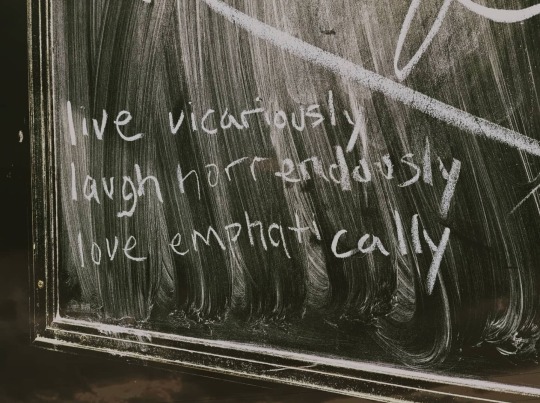 live vicariously
laugh horrendously
love emphatically